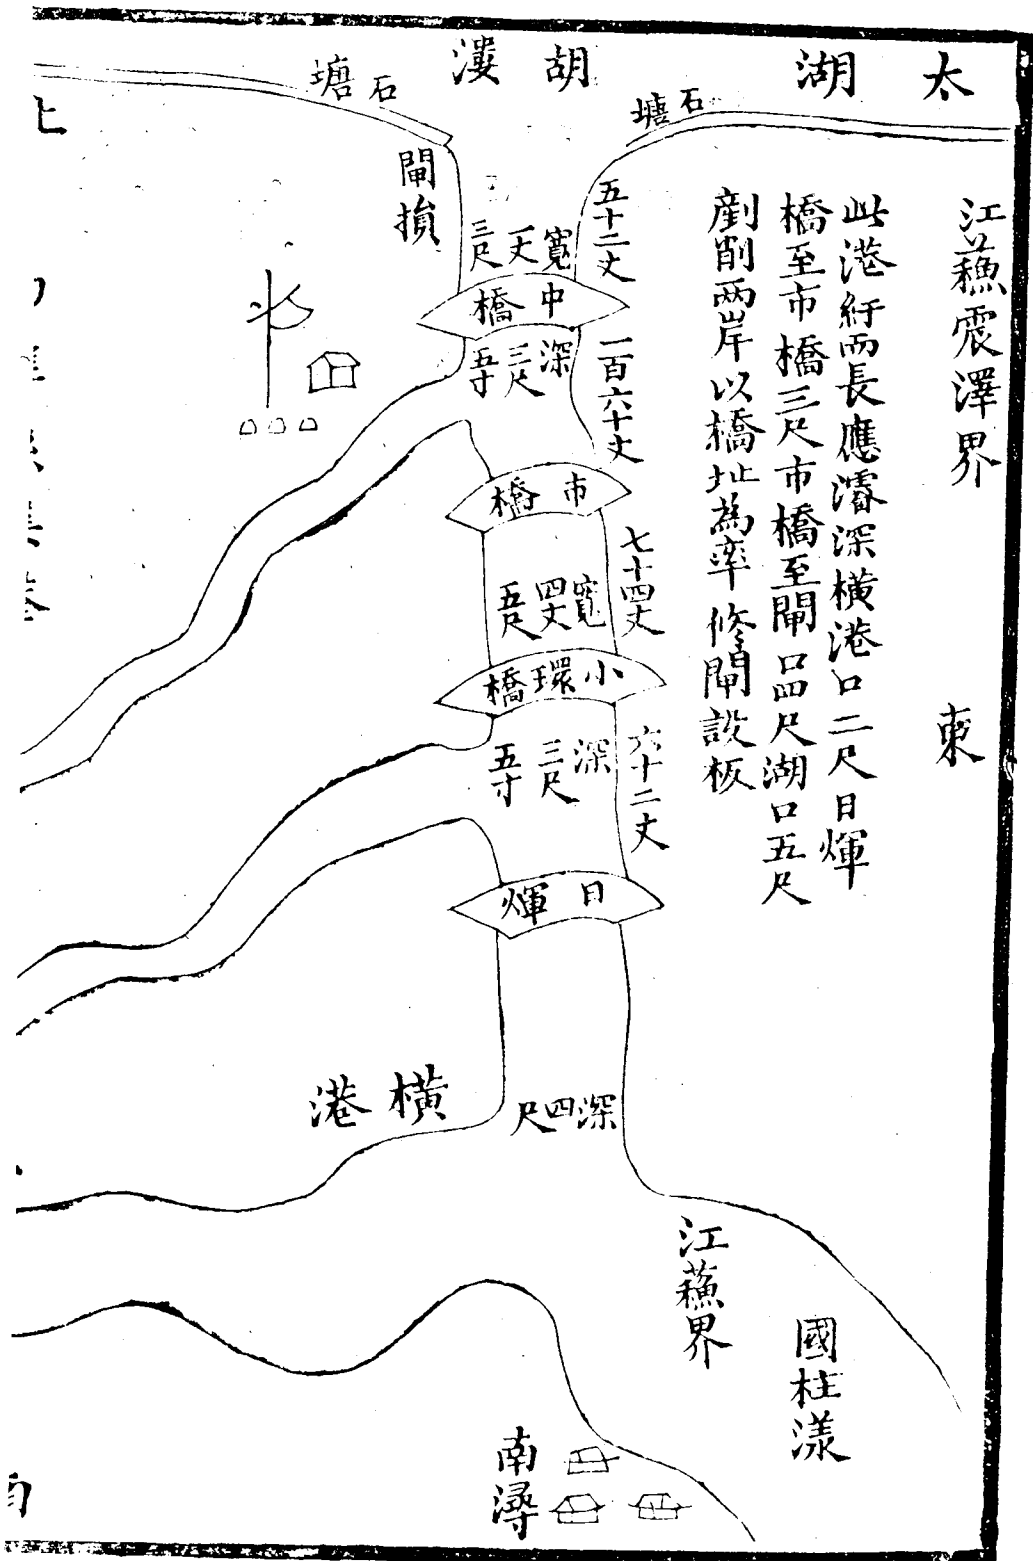 太湖
胡漊
石塘
石塘
江蘓震澤界
東
此港紆而長應濬深橫港口二尺日煇
橋至市橋三尺市橋至閘口四尺湖口五尺
剷削兩岸以橋址為率修閘設板
五十二丈
閘損
寬一丈三尺
中橋
深三尺五寸
一百六十丈
市橋
七十四丈
寬四丈五尺
小環橋
深三尺五寸
六十二丈
日煇
橫港
深四尺
江蘓界
國柱漾
南潯